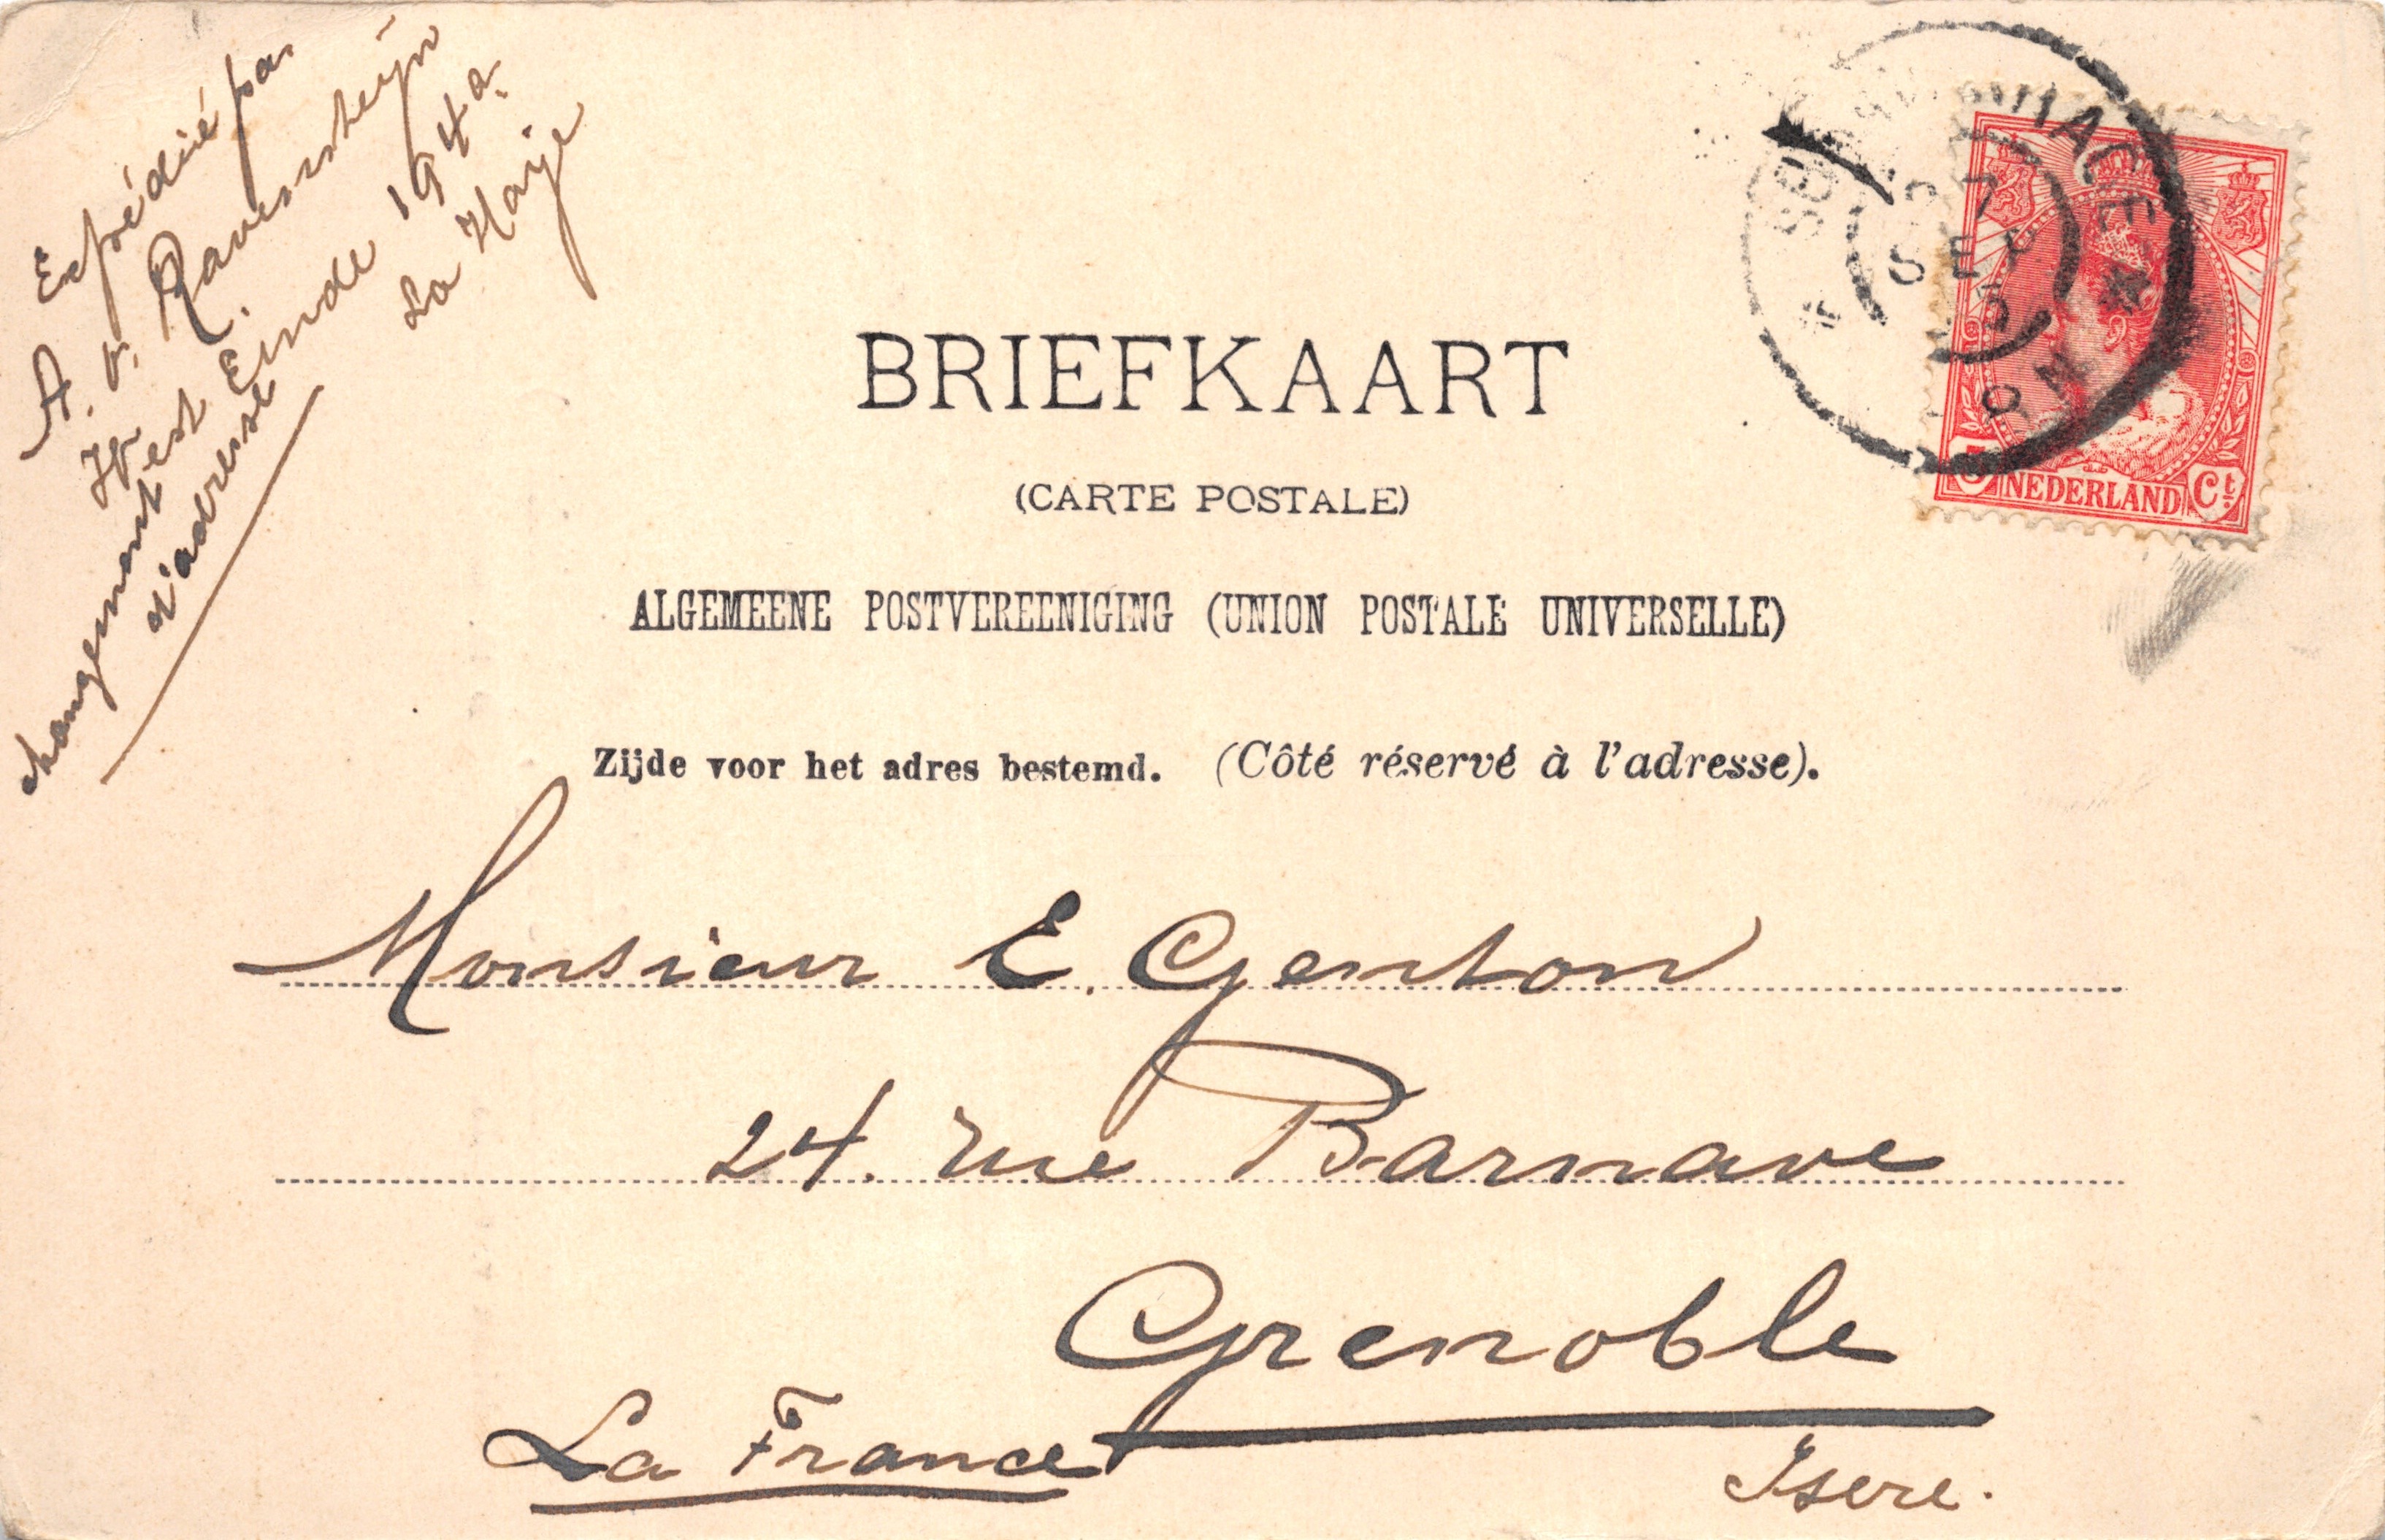 Expédié par
A. v. Ravensteijn
Hr. Einde 194a.
La Haye
changement est
d'adresse
BRIEFKAART
(CARTE POSTALE)
ALGEMEENE POSTVEREENIGING (UNION POSTALE UNIVERSELLE)
Zijde voor het adres bestemd. (Côté réservé à l'adresse).
SEP
5 NEDERLAND Ct.
Monsieur E. Genton
24. rue Barnave
Grenoble
La France
Isere.